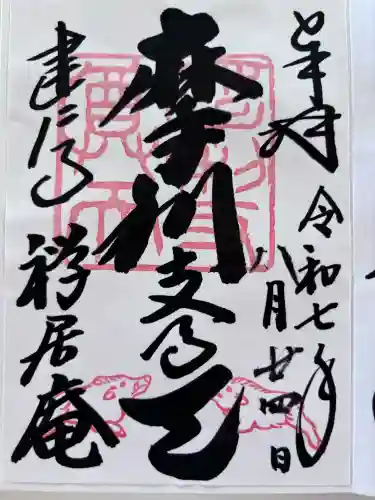 奉拝
令和七年
八月廿四日
摩利支尊天
建仁寺
禅居庵